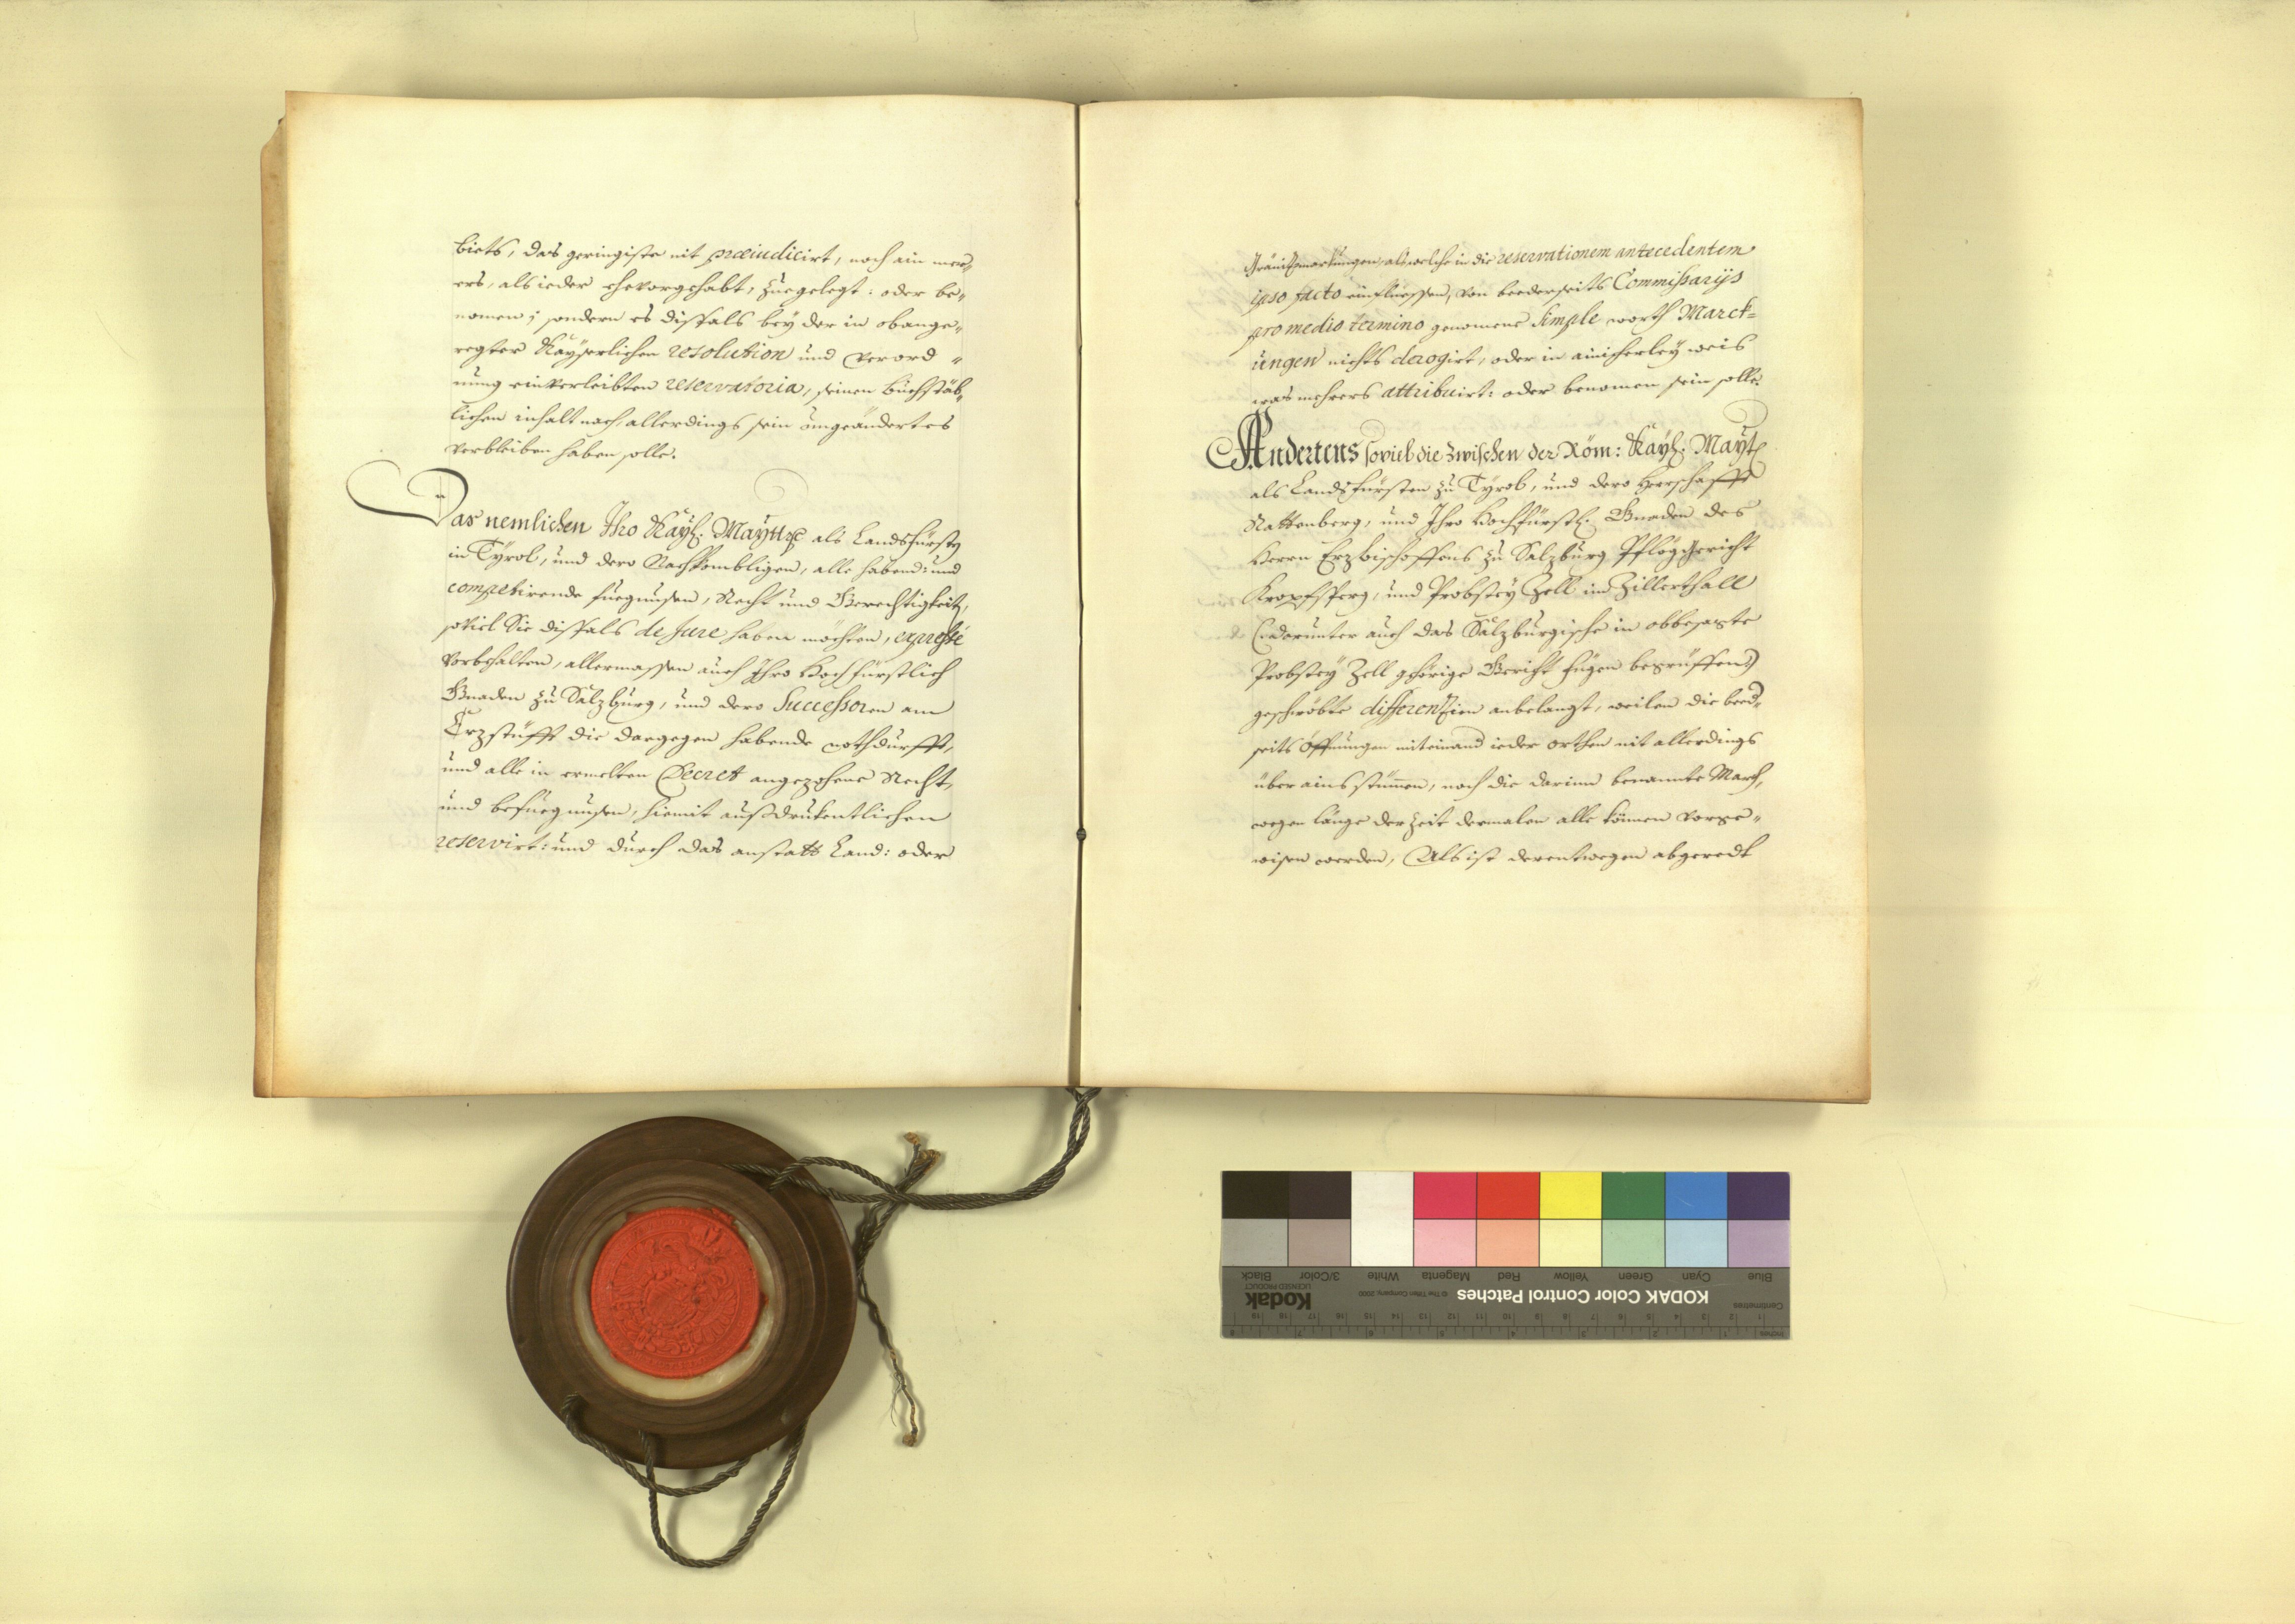 biets, das geringiste nit præiudicirt, noch ain meh„
ers, als ieder ehevorgehabt, zuegelegt: oder be„
nomen; sondern es disfals bey der in obange„
regter Kayserlichen resolution und verord„
nung einverleibten reservatoria, seinen buechstäb„
lichen inhalt nach, allerdings sein ungeändertes
verbleiben haben solle.
Das nemlichen Ihro Kayl. Maytt. als Landsfürsten
in Tyrol, und dero Nachkombligen, alle habend: und
competirende fuegnusen, Recht und Gerechtigkeit,
soviel Sie disfals de Jure haben möchten, expressè
vorbehalten, allermassen auch Ihro Hochfürstlich
Gnaden zu Salzburg, und dero Successoren am
Erzstüfft die dargegen habende nothdurfft,
und alle in ermelten Decret angezohene Recht,
und befuegnusen, hiemit ausdrukentlichen
reservirt: und durch das anstatt Land: oder
Gränitzmarkungen, als welche in die reservationem antecedentem
ipso facto einfluessen, von beederseits Commissarijs
pro medio termino genomene Simple worth Marck=
ungen nichts derogirt, oder in ainicherley weis
was mehrers attribuirt: oder benomen sein solle.
Andertens soviel die zwischen der Röm: Kayl. Mayt.
als Landsfürsten zu Tyrol, und dero Herrschafft
Rattenberg, und Ihro Hochfürstl. Gnaden des
Herrn Erzbischoffens zu Salzburg Pfleggericht
Kropfsperg, und Probstey Zell im Zillerthall
(: darunter auch das Salzburgische in obbesagte
Probstey Zell gehörige Gericht Fügen begriffen :)
geschwöbte differentzien anbelangt, weilen die beed„
seits öffnungen miteinand ieder orthen nit allerdings
über ains stümen, noch die darinn benannte March,
wegen länge der Zeit dermalen alle können vorge„
wisen werden, Als ist derentwegen abgeredt
KODAK Color Control Patches
Kodak
LICENSED PRODUCT
© The Tiffen Company, 2000
Blue Cyan Green Yellow Red Magenta White 3/Color Black
Centimetres
Inches